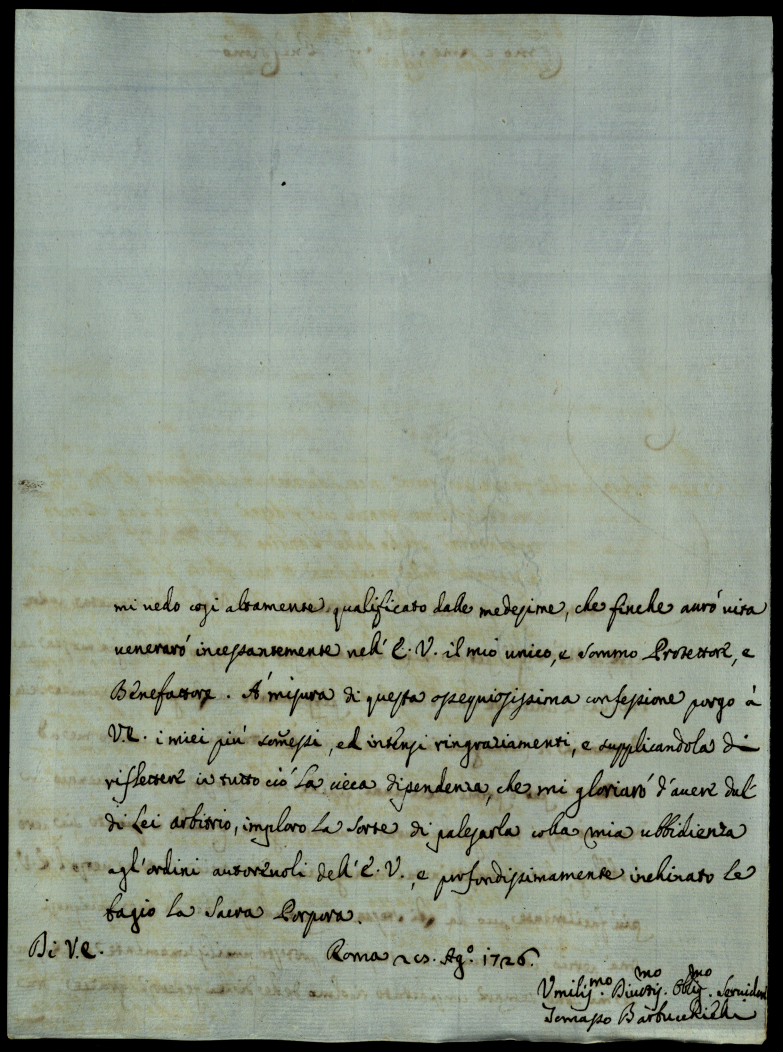 mi uedo cosi altamente qualificato dalle medesime, che finche aurò uita
ueneraró incessantemente nell' E. V. il mio unico, e sommo Protettore, e
Benefattore. A' misura di questa ossequiosissima confessione porgo à
V.E. i miei più somessi, ed intensi ringraziamenti, e supplicandola di
riflettere in tutto ciò la cieca dipendenza, che mi gloriaró d'auere dall'
di Lei arbitrio, imploro la sorte di palesarla colla mia ubbidienza
agl'ordini autoreuoli dell' E. V., e profondissimamente inchinato le
bagio la Sacra Porpora.
Di V.E. Roma Ag.º 1726.
Umiliss.mo Diuotis.mo Oblig.mo Seruidore
Tomasso